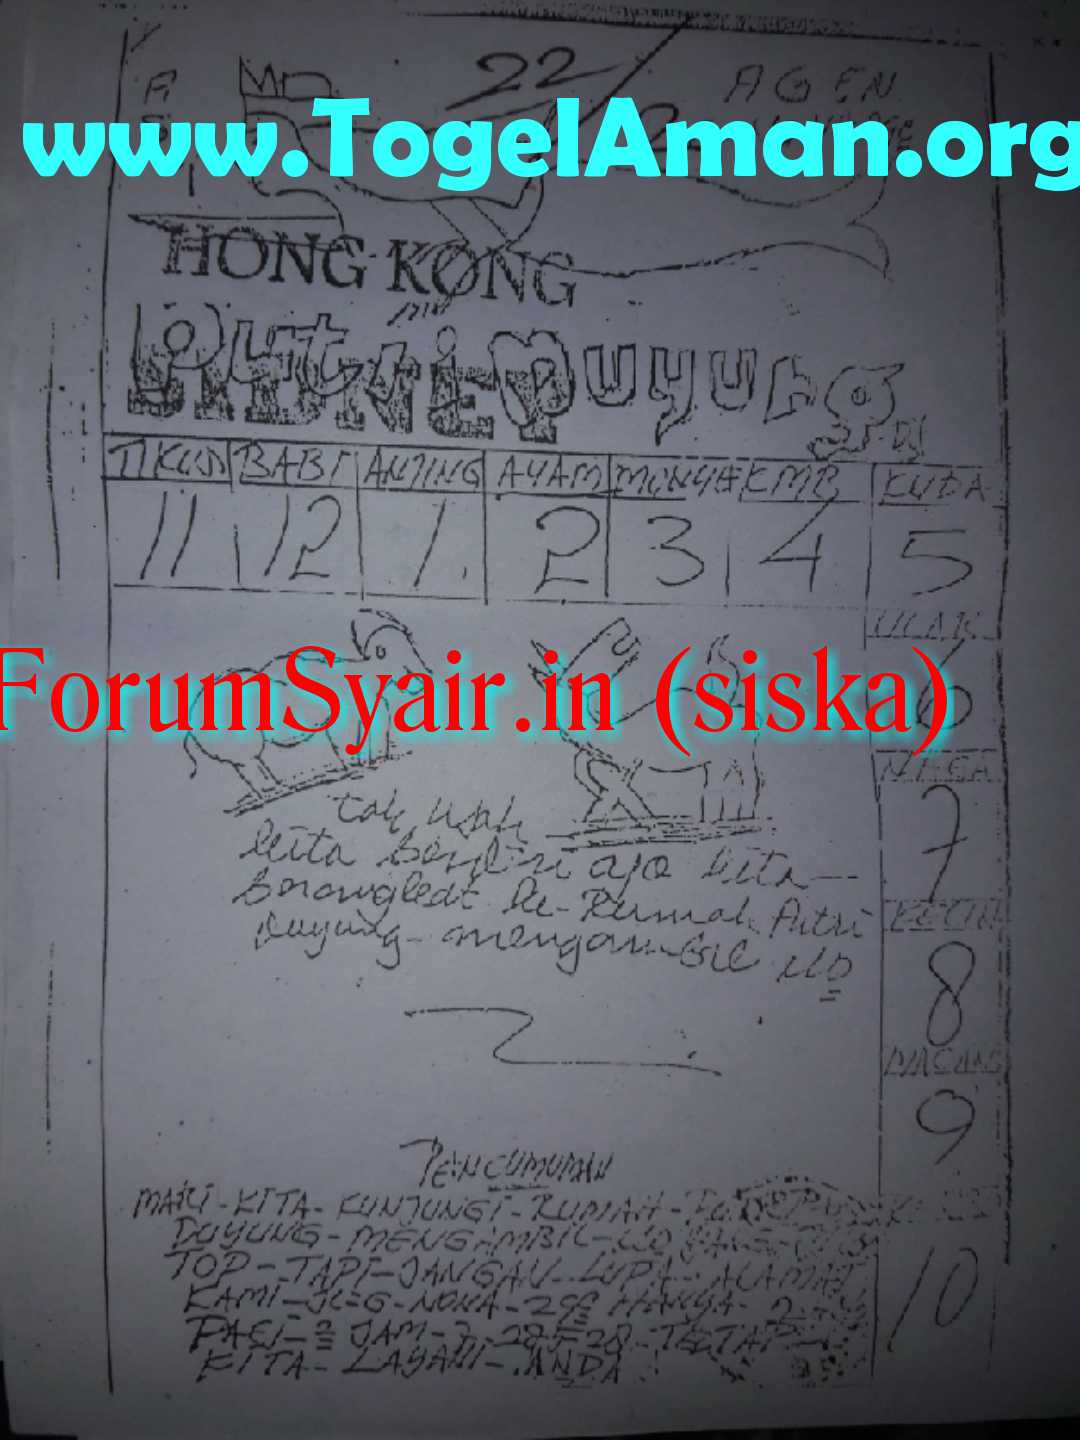 MD 22 AGEN
www.TogelAman.org
HONG KONG
Putri Duyung
SIDNEY
TIKUS BABI ANJING AYAM MONYE KMB KUDA
11 12 1. 2 3 4 5
ULAR
ForumSyair.in (siska)
6
NAGA
tak usah
kita berdiri ajo kita
7
berangkat ke-Rumah Putri
duyung-mengambil NO
8
MACAN
9
PENGUMUMAN
MARI-KITA-KUNJUNGI-RUMAH-
DUYUNG-MENGAMBIL-NO
TOP-TAPI-JANGAN-LUPA-ALAMAT
10
KAMI- HANYA-
JAM- TETAP
KITA-LAYANI-ANDA